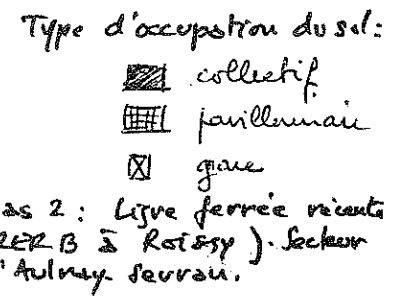 Type d'occupation du sol:
collectif
pavillonnaire
gare
as 2 : Ligne ferrée récente
RER B à Roissy). Secteur
'Aulnay-Sevran.